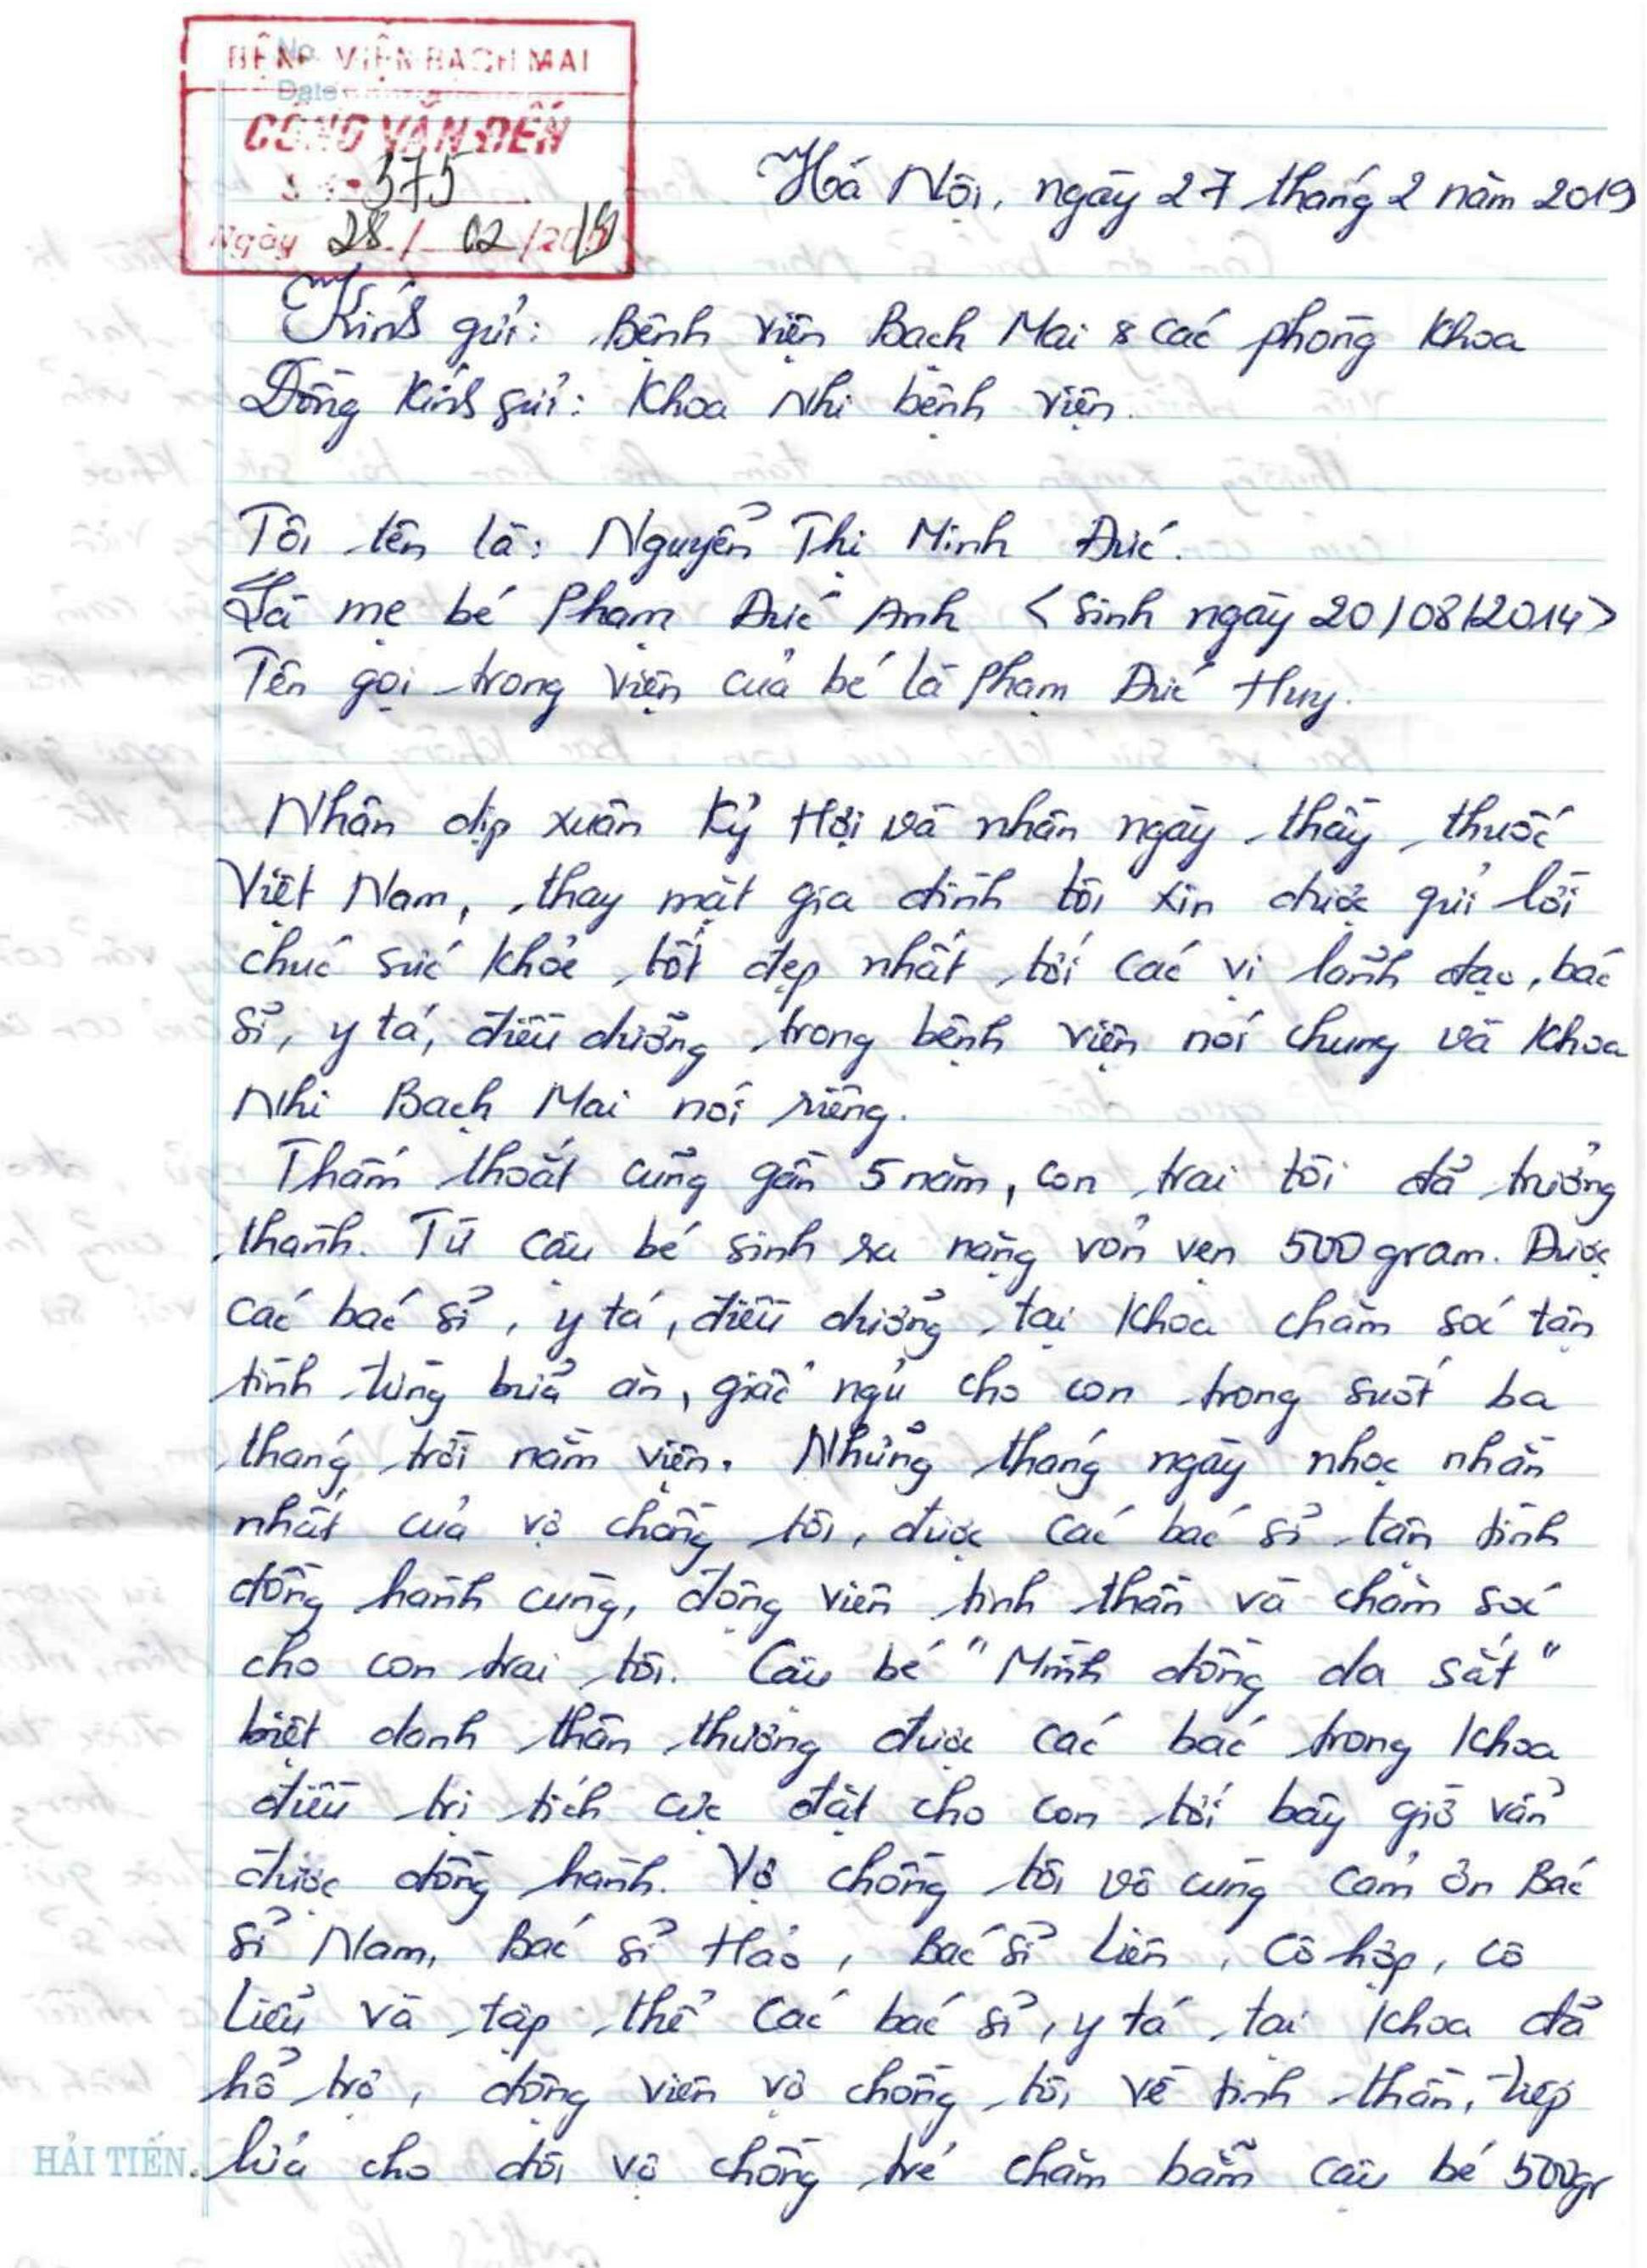 No.
Date
BỆNH VIỆN BẠCH MAI
CÔNG VĂN ĐẾN
Số: 375
Ngày 28 / 02 / 2019
Hà Nội, ngày 27 tháng 2 năm 2019
Kính gửi: Bệnh viện Bạch Mai & các phòng khoa
Đồng kính gửi: Khoa Nhi bệnh viện.
Tôi tên là: Nguyễn Thị Minh Đức.
Là mẹ bé Phạm Đức Anh <Sinh ngày 20/08/2014>
Tên gọi trong viện của bé là Phạm Đức Huy.
Nhân dịp xuân Kỷ Hợi và nhân ngày thầy thuốc
Việt Nam, thay mặt gia đình tôi xin được gửi lời
chúc sức khỏe tốt đẹp nhất tới các vị lãnh đạo, bác
sĩ, y tá, điều dưỡng trong bệnh viện nói chung và khoa
Nhi Bạch Mai nói riêng.
Thấm thoắt cũng gần 5 năm, con trai tôi đã trưởng
thành. Từ cậu bé sinh ra nặng vỏn vẹn 500 gram. Được
các bác sĩ, y tá, điều dưỡng tại khoa chăm sóc tận
tình từng bữa ăn, giấc ngủ cho con trong suốt ba
tháng trời nằm viện. Những tháng ngày nhọc nhằn
nhất của vợ chồng tôi, được các bác sĩ tận tình
đồng hành cùng, động viên tinh thần và chăm sóc
cho con trai tôi. Cậu bé "Mình đồng da sắt"
biệt danh thân thương được các bác trong khoa
điều trị tích cực đặt cho con tới bây giờ vẫn
được đồng hành. Vợ chồng tôi vô cùng cảm ơn Bác
sĩ Nam, Bác sĩ Hảo, Bác sĩ Liên, Cô hợp, cô
Liễu và tập thể các bác sĩ, y tá tại khoa đã
hỗ trợ, động viên vợ chồng tôi về tinh thần, tiếp
lửa cho đôi vợ chồng trẻ chăm bẵm cậu bé 500gr
HẢI TIẾN